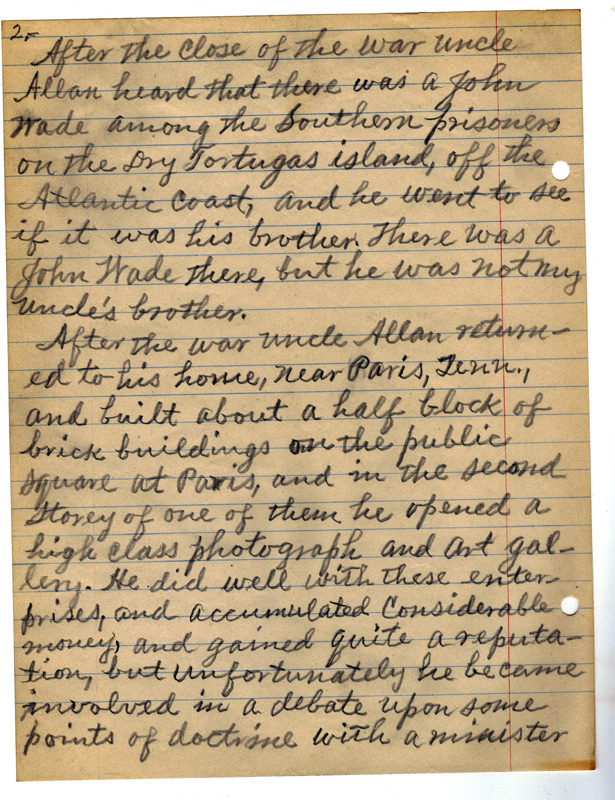 2,-
After the close of the war uncle
Allan heard that there was a John
Wade among the Southern prisoners
on the Dry Tortugas island, off the
Atlantic coast, and he went to see
if it was his brother. There was a
John Wade there, but he was not my
uncle's brother.
After the war uncle Allan return-
ed to his home, near Paris, Tenn.,
and built about a half block of
brick buildings on the public
square at Paris, and in the second
storey of one of them he opened a
high class photograph and art gal-
lery. He did well with these enter-
prises, and accumulated considerable
money, and gained quite a reputa-
tion, but unfortunately he became
involved in a debate upon some
points of doctrine with a minister